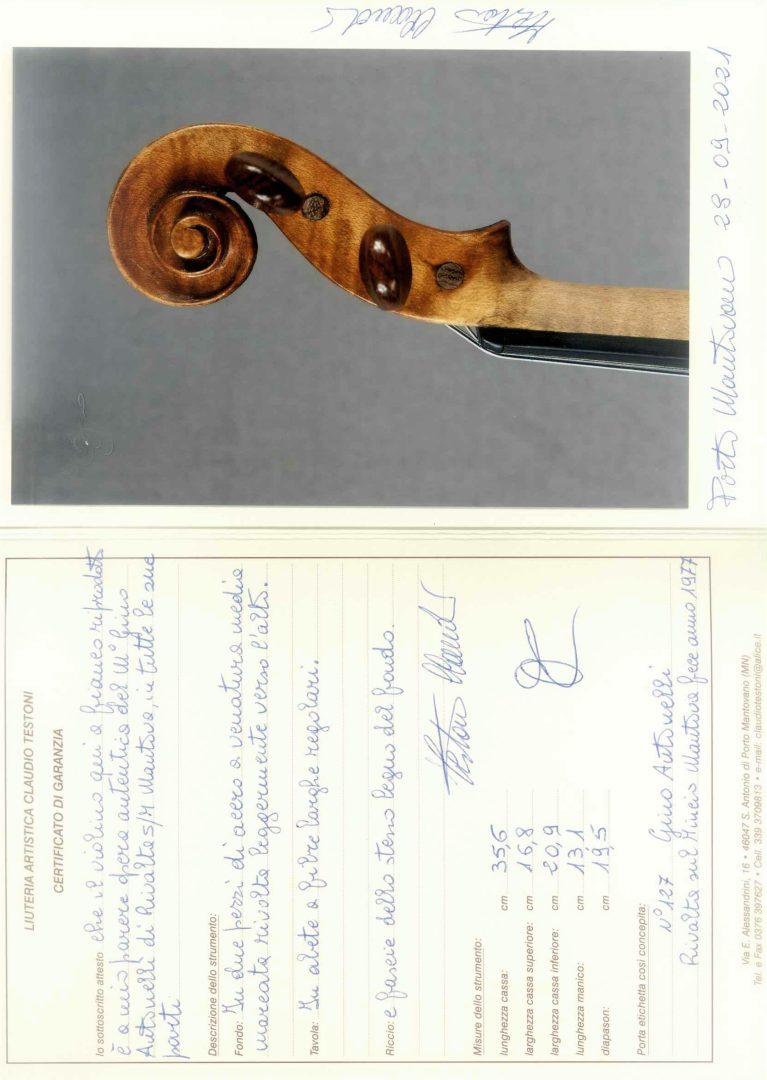 LIUTERIA ARTISTICA CLAUDIO TESTONI
CERTIFICATO DI GARANZIA
Io sottoscritto attesto che il violino qui a fianco riprodotto
è a mio parere opera autentica del M° Gino
Antonelli di Rivalta s/M Mantova, in tutte le sue
parti
Descrizione dello strumento:
Fondo: In due pezzi di acero a venatura media
marcata rivolta leggermente verso l'alto.
Tavola: In abete a fibre larghe regolari.
Riccio: e fascie dello stesso legno del fondo.
Testoni Claudio
Misure dello strumento:
lunghezza cassa: cm 35,6
larghezza cassa superiore: cm 16,8
larghezza cassa inferiore: cm 20,9
lunghezza manico: cm 13,1
diapason: cm 19,5
Porta etichetta così concepita:
N° 127 Gino Antonelli
Rivalta sul Mincio Mantova fece anno 1977
Via E. Alessandrini, 16 • 46047 S. Antonio di Porto Mantovano (MN)
Tel. e Fax 0376 397627 • Cell. 339 3709813 • e-mail: claudiotestoni@alice.it
Testoni Claudio
Porto Mantovano 29-09-2021